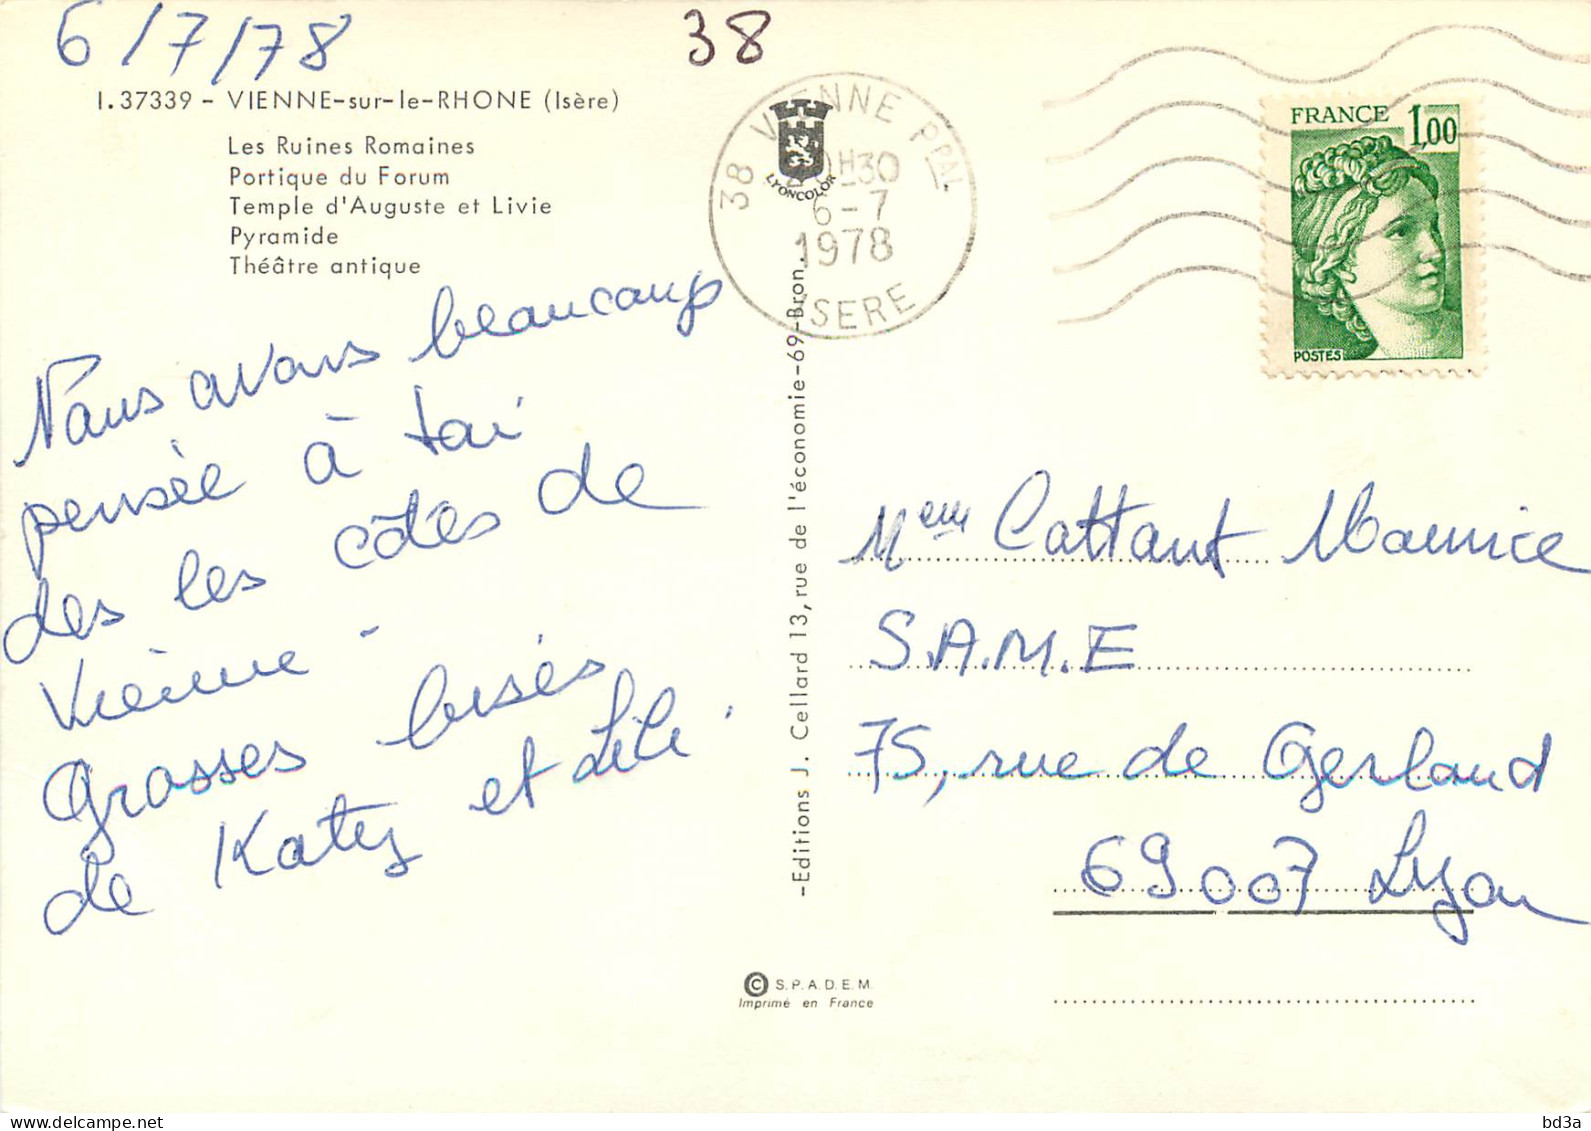 6/7/78
38
I.37339 - VIENNE-sur-le-RHONE (Isère)
Les Ruines Romaines
Portique du Forum
Temple d'Auguste et Livie
Pyramide
Théâtre antique
Nous avons beaucoup
pensée à toi
des les côtes de
Vienne -
Grosses bisés
de Katy et Lili
38 VIENNE PPAL
H30
6-7
1978
ISERE
LYONCOLOR
FRANCE 1,00
POSTES
-Editions J. Cellard 13, rue de l'économie-69-Bron.
Mem Cattant Maurice
S.A.M.E
75, rue de Gerland
69007 Lyon
© S.P.A.D.E.M.
Imprimé en France
bd3a